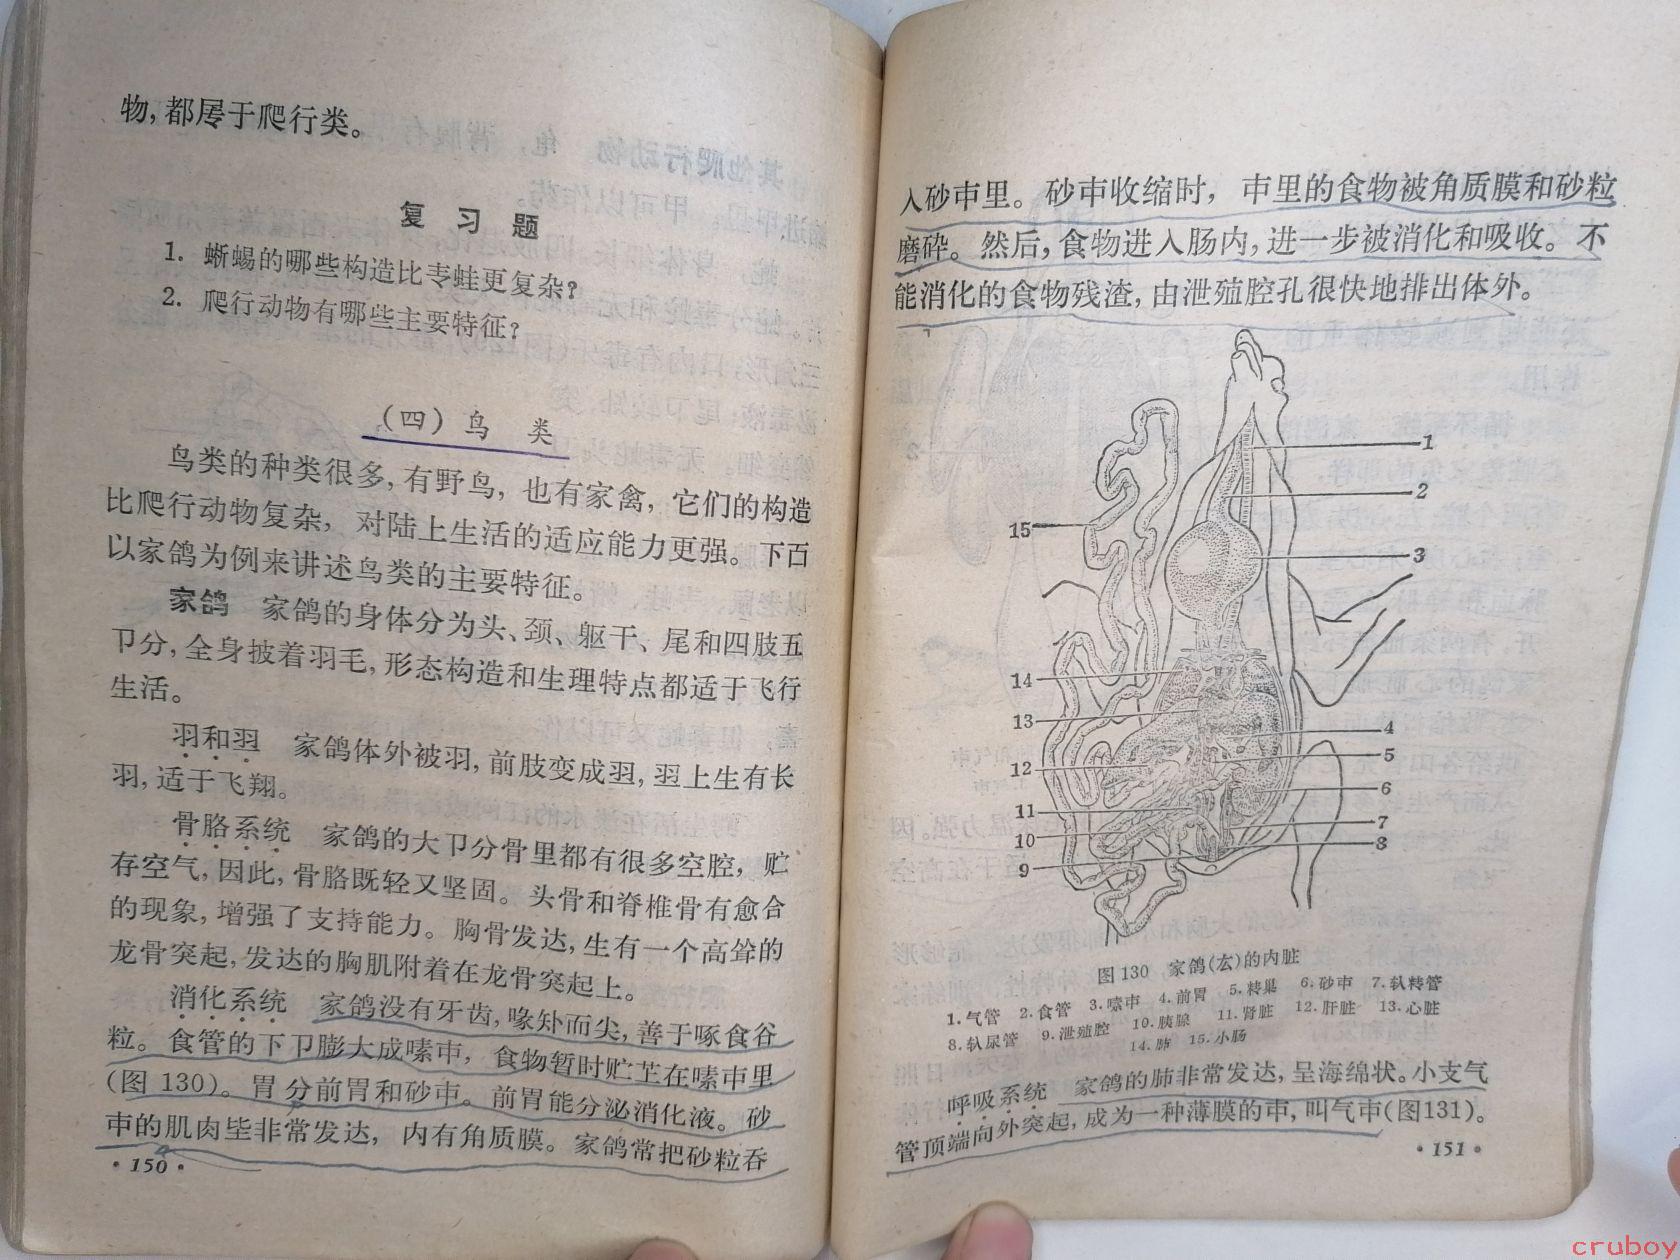 物,都属于爬行类。
复习题
1. 蜥蜴的哪些构造比青蛙更复杂?
2. 爬行动物有哪些主要特征?
(四) 鸟 类
鸟类的种类很多,有野鸟,也有家禽,它们的构造
比爬行动物复杂,对陆上生活的适应能力更强。下面
以家鸽为例来讲述鸟类的主要特征。
家鸽 家鸽的身体分为头、颈、躯干、尾和四肢五
卩分,全身披着羽毛,形态构造和生理特点都适于飞行
生活。
羽和翼 家鸽体外被羽,前肢变成翼,翼上生有长
羽,适于飞翔。
骨胳系统 家鸽的大卩分骨里都有很多空腔,贮
存空气,因此,骨胳既轻又坚固。头骨和脊椎骨有愈合
的现象,增强了支持能力。胸骨发达,生有一个高耸的
龙骨突起,发达的胸肌附着在龙骨突起上。
消化系统 家鸽没有牙齿,喙短而尖,善于啄食谷
粒。食管的下卩膨大成嗉囊,食物暂时贮藏在嗉囊里
(图 130)。胃分前胃和砂囊。前胃能分泌消化液。砂
囊的肌肉坒非常发达,内有角质膜。家鸽常把砂粒吞
·150·
入砂囊里。砂囊收缩时,囊里的食物被角质膜和砂粒
磨碎。然后,食物进入肠内,进一步被消化和吸收。不
能消化的食物残渣,由泄殖腔孔很快地排出体外。
1
2
3
15
14
13
12
11
10
9
4
5
6
7
8
图 130 家鸽(厷)的内脏
1.气管 2.食管 3.嗉囊 4.前胃 5.精巢 6.砂囊 7.输精管
8.输尿管 9.泄殖腔 10.胰腺 11.肾脏 12.肝脏 13.心脏
14.肺 15.小肠
呼吸系统 家鸽的肺非常发达,呈海绵状。小支气
管顶端向外突起,成为一种薄膜的囊,叫气囊(图131)。
·151·
cruboy